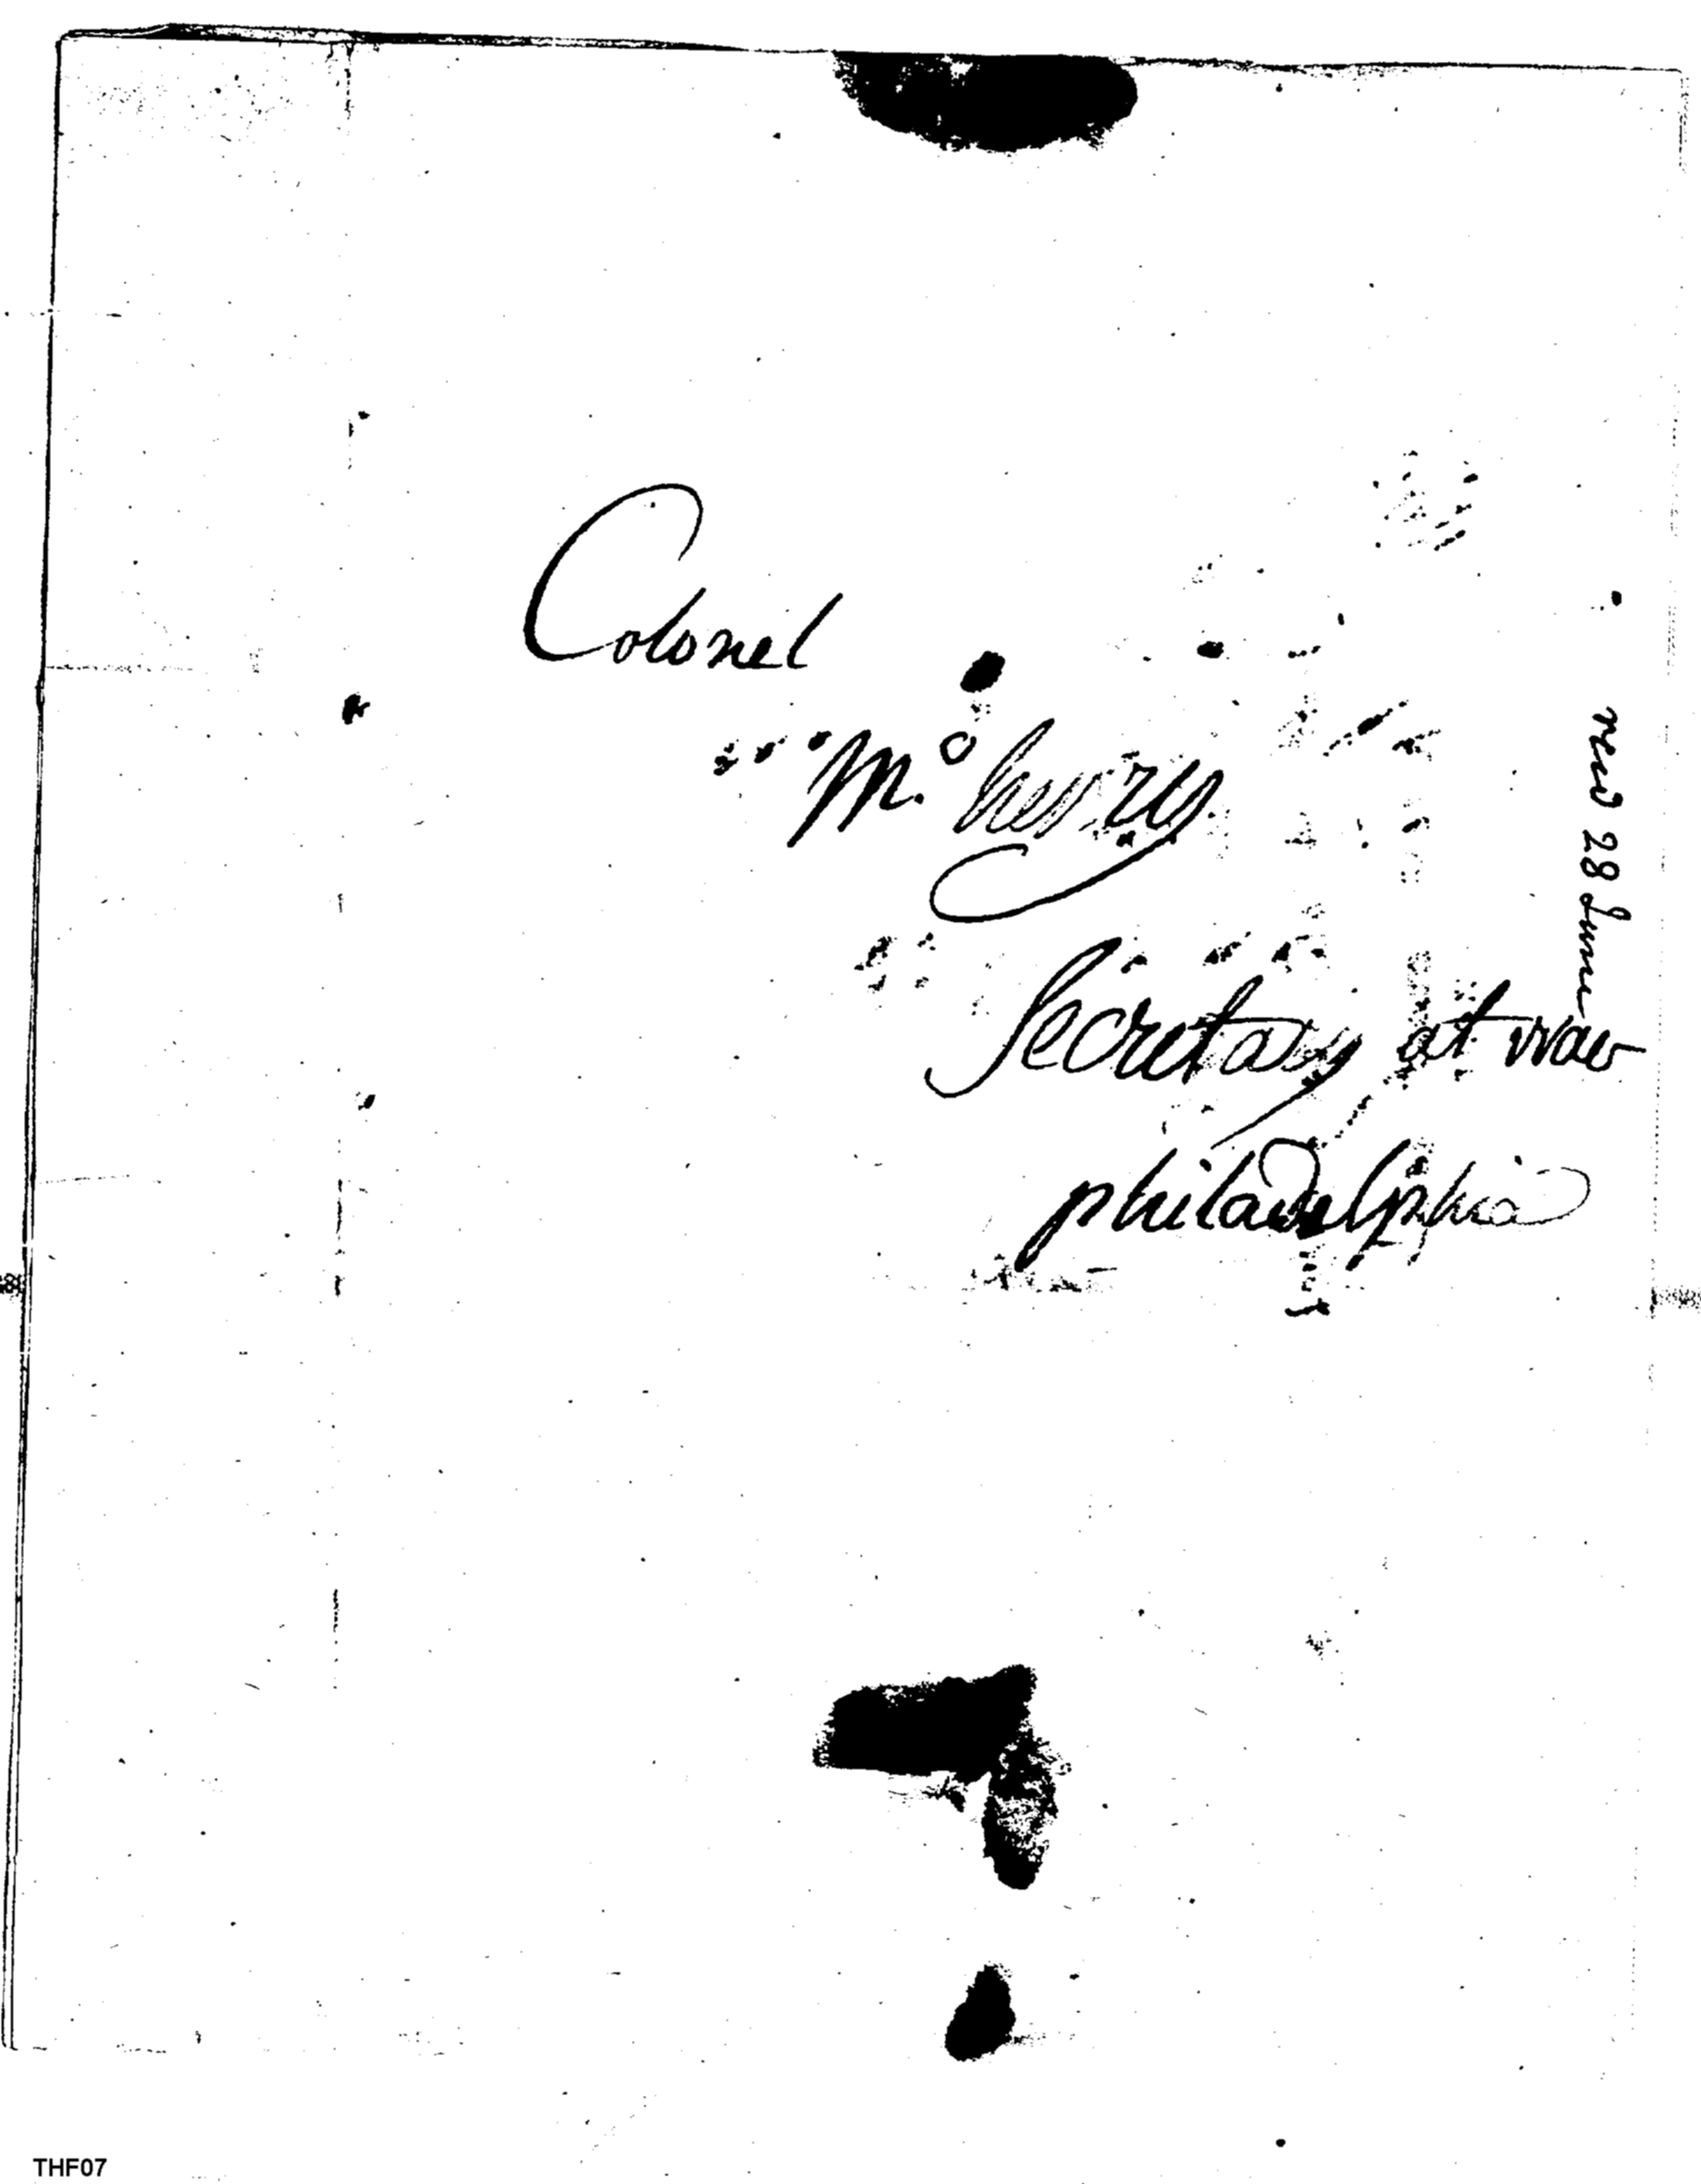 Colonel
M.c henry
Secretary at war
philadelphia
recd 28 June
THF07